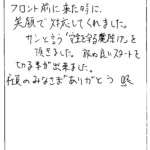 フロント前に来た時に、
笑顔で対応してくれました。
サンと言う
頂きました。旅の良いスタートを
切る事が出来ました。
社員のみなさまありがとう